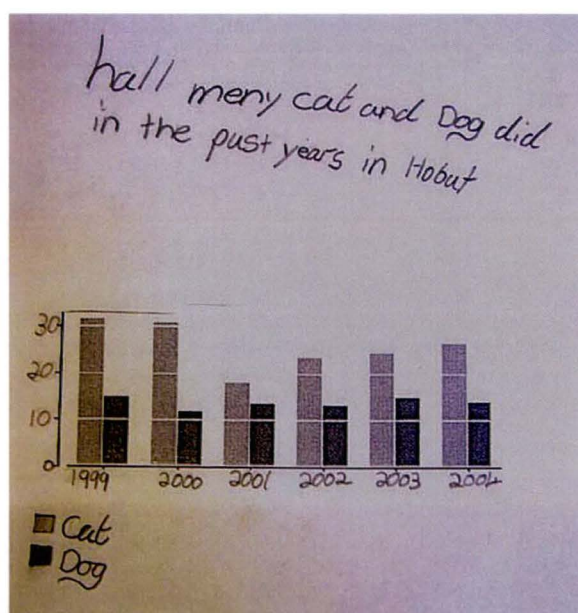 hall meny cat and Dog did
in the past years in Hobut
30
20
10
0
1999 2000 2001 2002 2003 2004
Cat
Dog